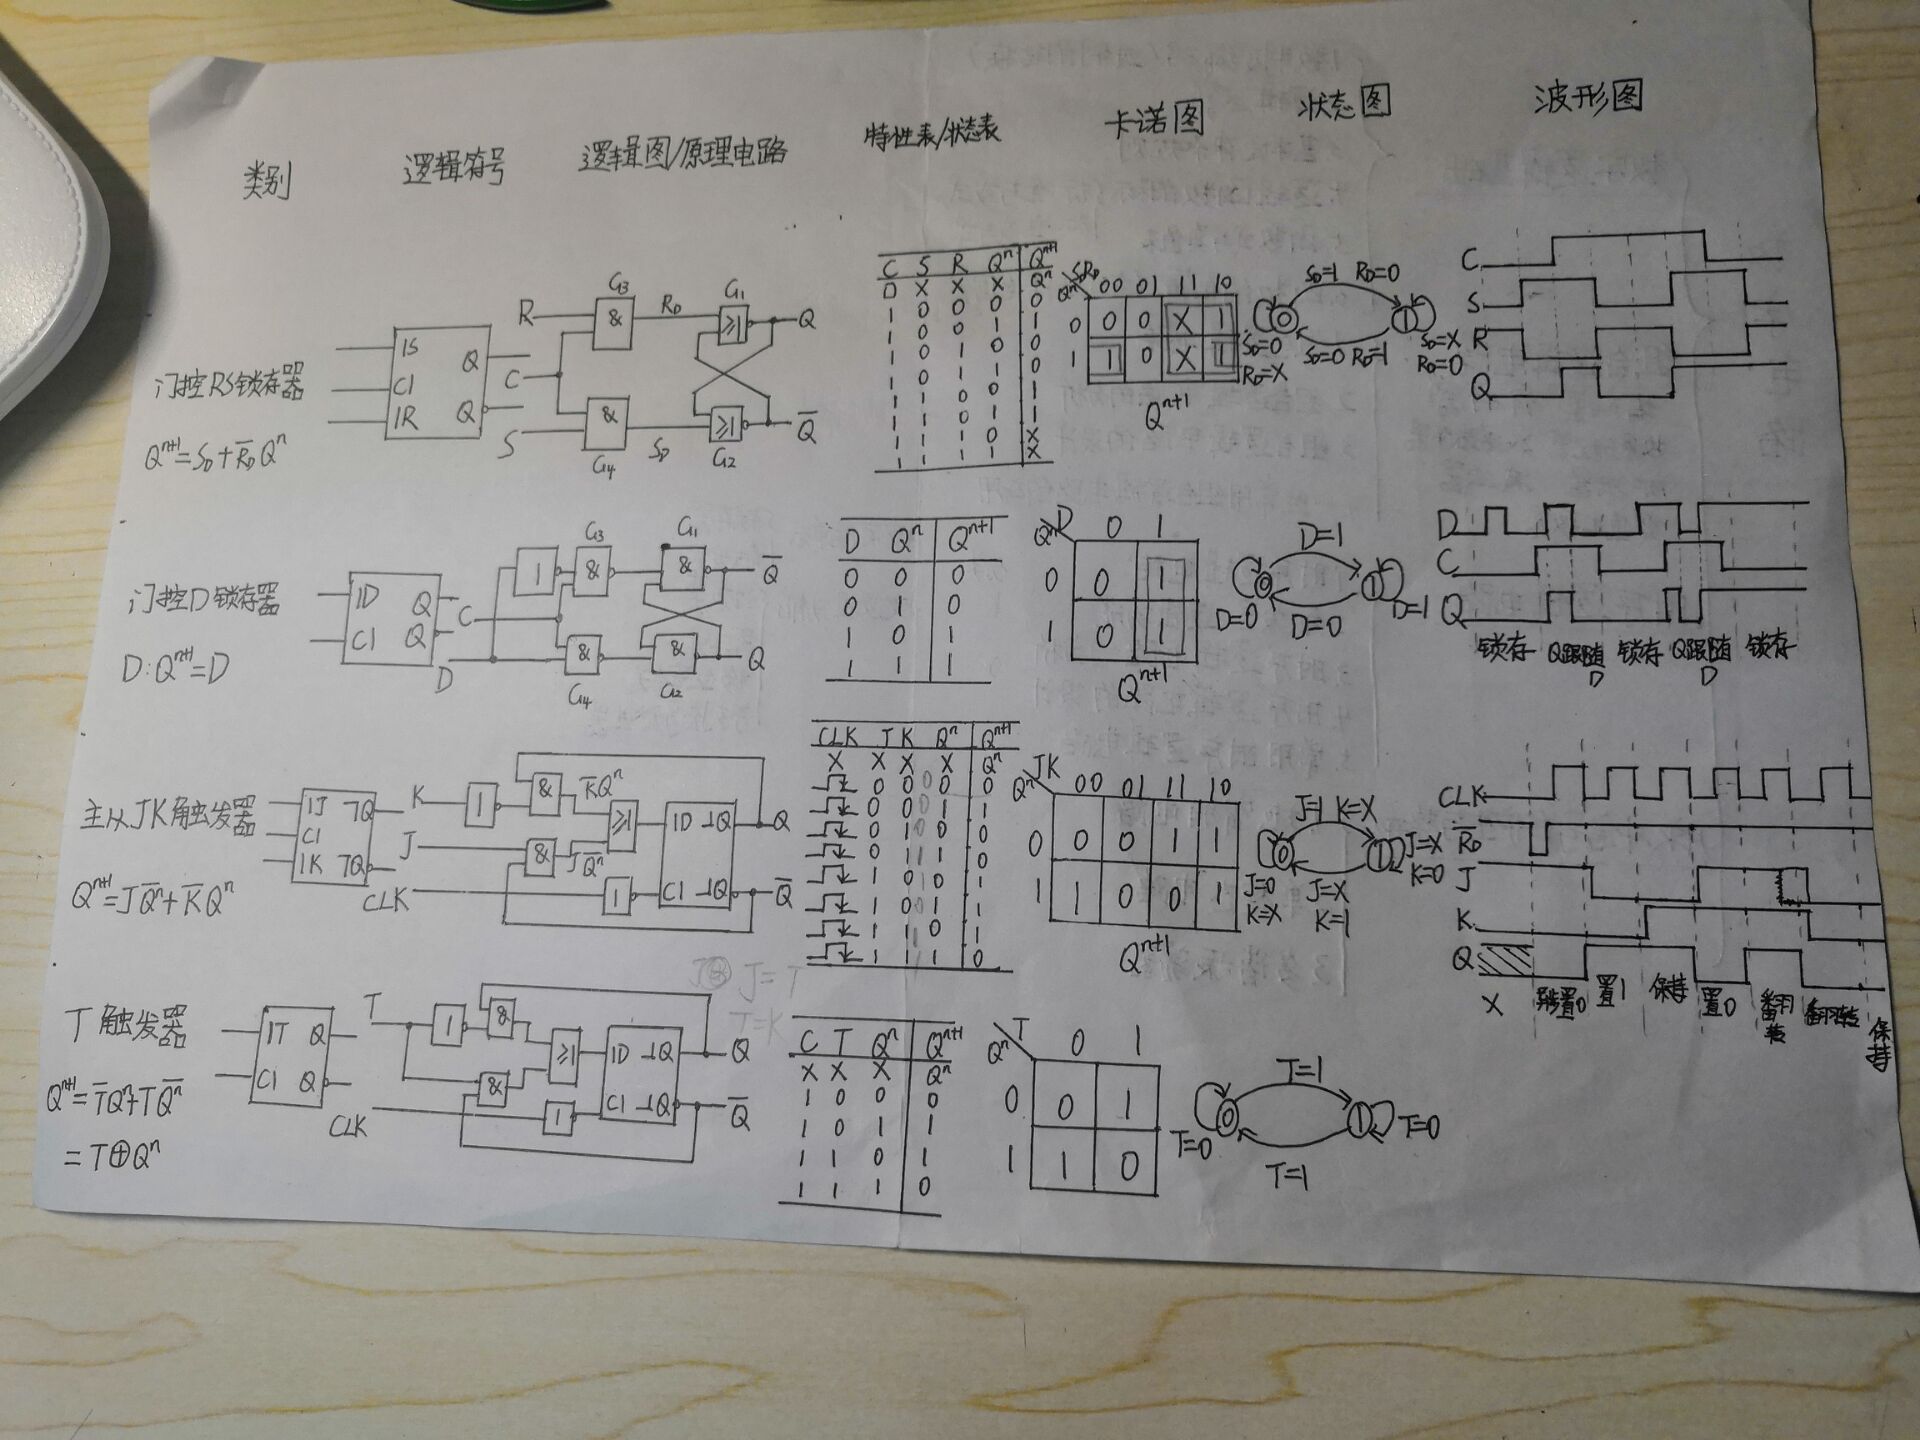 类别 逻辑符号 逻辑图/原理电路 特性表/状态表 卡诺图 状态图 波形图
门控RS锁存器
Q^{n+1}=S_D+\overline{R_D}Q^n
1S Q
C1
1R Q
R & R_D ≥1 Q
G3 G1
C
S & S_D ≥1 \overline{Q}
G4 G2
C S R Q^n Q^{n+1}
0 X X X Q^n
1 0 0 0 0
1 0 0 1 1
1 0 1 0 0
1 0 1 1 0
1 1 0 0 1
1 1 0 1 1
1 1 1 0 X
1 1 1 1 X
Q^n S R_D 00 01 11 10
0 0 0 X 1
1 1 0 X 1
Q^{n+1}
S_D=1 R_D=0
0 1
S_D=0 R_D=X
S_D=0 R_D=1
S_D=X R_D=0
C
S
R
Q
门控D锁存器
D:Q^{n+1}=D
1D Q
C1 Q
C
D
G3 G1
1 & & \overline{Q}
& & Q
G4 G2
D Q^n Q^{n+1}
0 0 0
0 1 0
1 0 1
1 1 1
Q^n D 0 1
0 0 1
1 0 1
Q^{n+1}
D=1
0 1
D=0 D=0 D=1
D
C
Q
锁存 Q跟随D 锁存 Q跟随D 锁存
主从JK触发器
Q^{n+1}=J\overline{Q^n}+\overline{K}Q^n
1J ┐Q
C1
1K ┐Q
K 1 & \overline{K}Q^n ≥1 1D ┐Q Q
J & J\overline{Q^n}
CLK 1 C1 ┐Q \overline{Q}
CLK J K Q^n Q^{n+1}
X X X X Q^n
0 0 0 0
0 0 1 1
0 1 0 0
0 1 1 0
1 0 0 1
1 0 1 1
1 1 0 1
1 1 1 0
Q^n JK 00 01 11 10
0 0 0 1 1
1 1 0 0 1
Q^{n+1}
J=1 K=X
0 1
J=0 K=X
J=X K=1
J=X K=0
CLK
\overline{R_D}
J
K
Q
X 异步置0 置1 保持 置0 翻转 翻转 保持
T触发器
Q^{n+1}=\overline{T}Q^n+T\overline{Q^n}
=T⊕Q^n
1T Q
C1 Q
T 1 & ≥1 1D ┐Q Q
&
CLK 1 C1 ┐Q \overline{Q}
J=T
T=K
C T Q^n Q^{n+1}
X X X Q^n
1 0 0 0
1 0 1 1
1 1 0 1
1 1 1 0
Q^n T 0 1
0 0 1
1 1 0
T=1
0 1
T=0 T=1 T=0